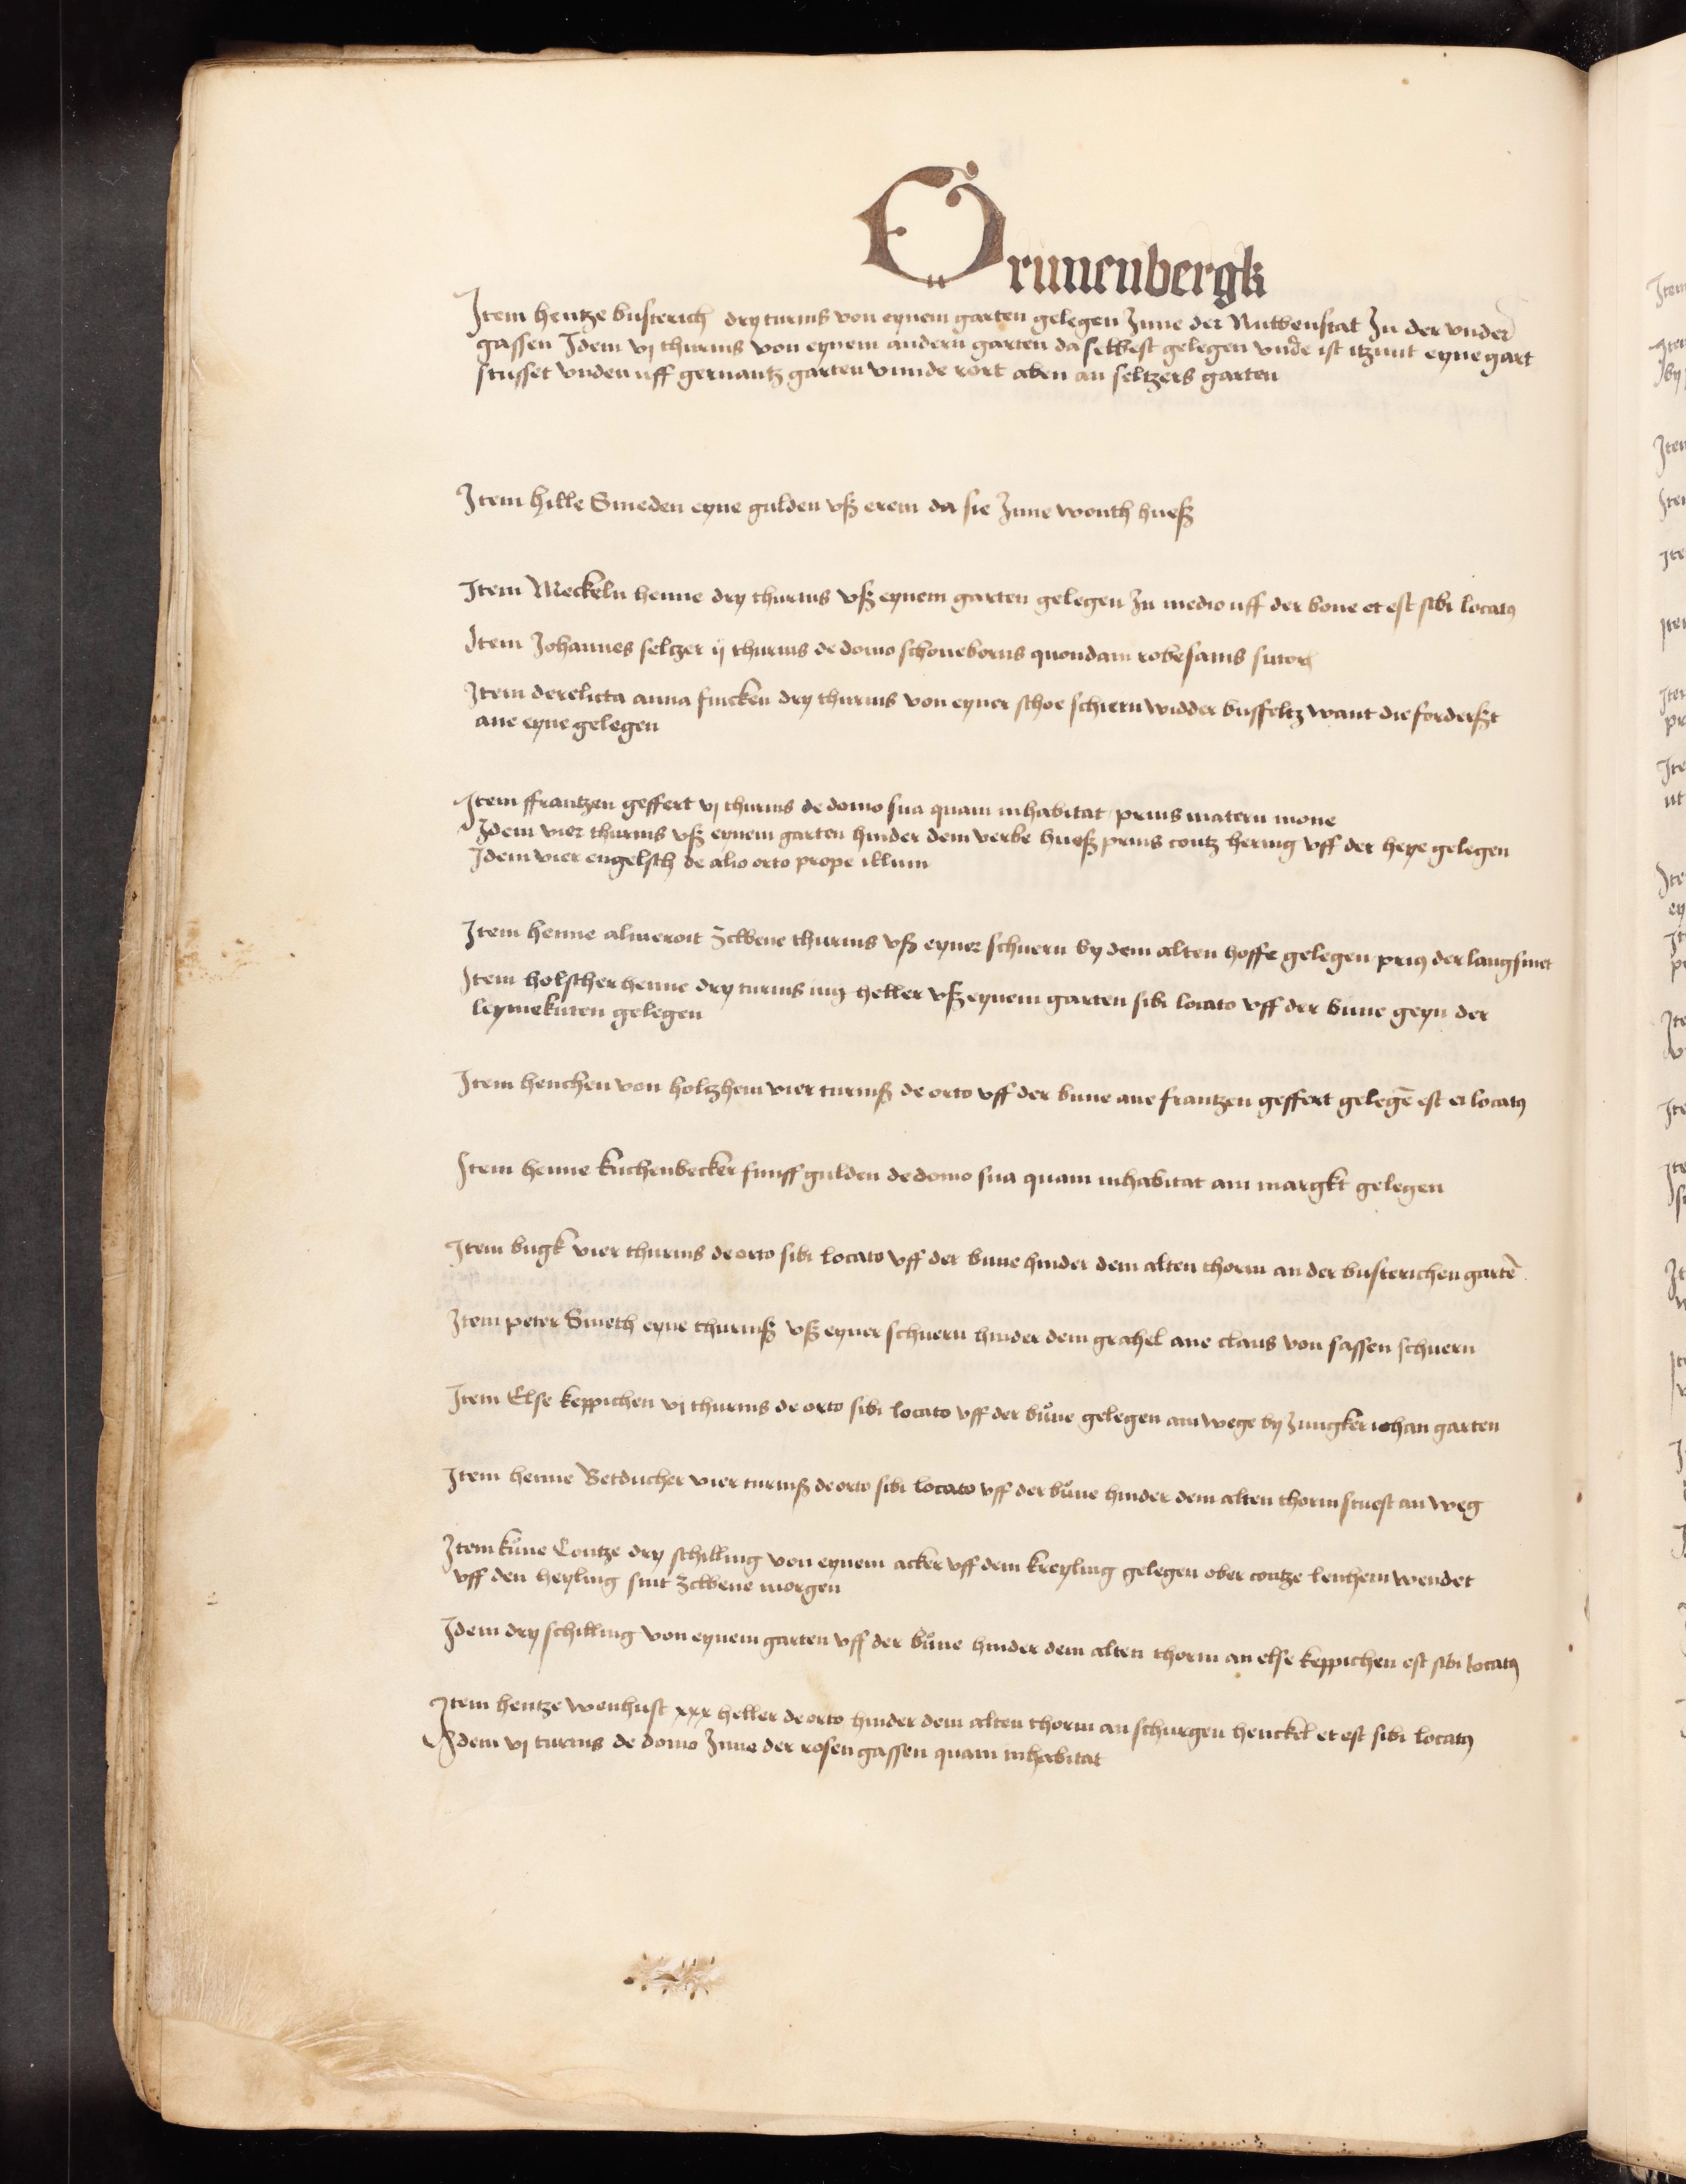 Grunenbergk
Item hentze busterich dry turnis von eynem garten gelegen Inne der Nuwenstat In der vnder
gassen Idem vj thurnis von eynem andern garten da selbest gelegen vnde ist itzunt eyne gart
stusset vnden uff gernantz garten vnnde rort aben an seltzers garten
Item hille Smeden eyne gulden vß erem da sie Inne wonth hueß
Item Meckeln henne dry thurnis vß eynem garten gelegen In medio uff der bone et est sibi locatꝰ
Item Johannes seltzer ij thurnis de domo schoneborns quondam robesams sutor
Item derelicta anna fincken dry thurnis von eyner schoe schiern widder busseltz want die forderßt
ane eyne gelegen
Item ffrantzen geffert vj thurnis de domo sua quam inhabitat prius matern mone
Idem vier thurnis vß eynem garten hinder dem verbe hueß prius contz hering vff der heye gelegen
Idem vier engelsch de alio orto prope illum
Item henne almerott Zcwene thurnis vß eyner schuern by dem alten hoffe gelegen priꝰ der langsmet
Item holscher henne dry turnis iiij heller vß eynem garten sibi locato vff der bune geyn der
leymekuten gelegen
Item henchen von holtzhem vier turniß de orto vff der bune ane frantzen geffert gelegē est ei locatꝰ
Item henne kuchenbecker funff gulden de domo sua quam inhabitat am margkt gelegen
Item bugk vier thurnis de orto sibi locato vff der bune hinder dem alten thorm an der busterichen gartē
Item peter Smeth eyne thurniß vß eyner schuern hinder dem grahel ane claus von sassen schuern
Item Else keppichen vj thurnis de orto sibi locato vff der bůne gelegen am wege by Jungker iohan garten
Item henne Betducher vier turniß de orto sibi locato vff der bůne hinder dem alten thorm stuest an weg
Item kůne Contze dry schilling von eynem acker vff dem kreyling gelegen ober contze lenthem wendet
vff den heyling sint Zcwene morgen
Idem dry schilling von eynem garten vff der bůne hinder dem alten thorm an else keppichen est sibi locatꝰ
Item hentze wenhust xxx heller de orto hinder dem alten thorm an schurgen henckel et est sibi locatꝰ
Idem vj turnis de domo Inne der rosen gassen quam inhabitat